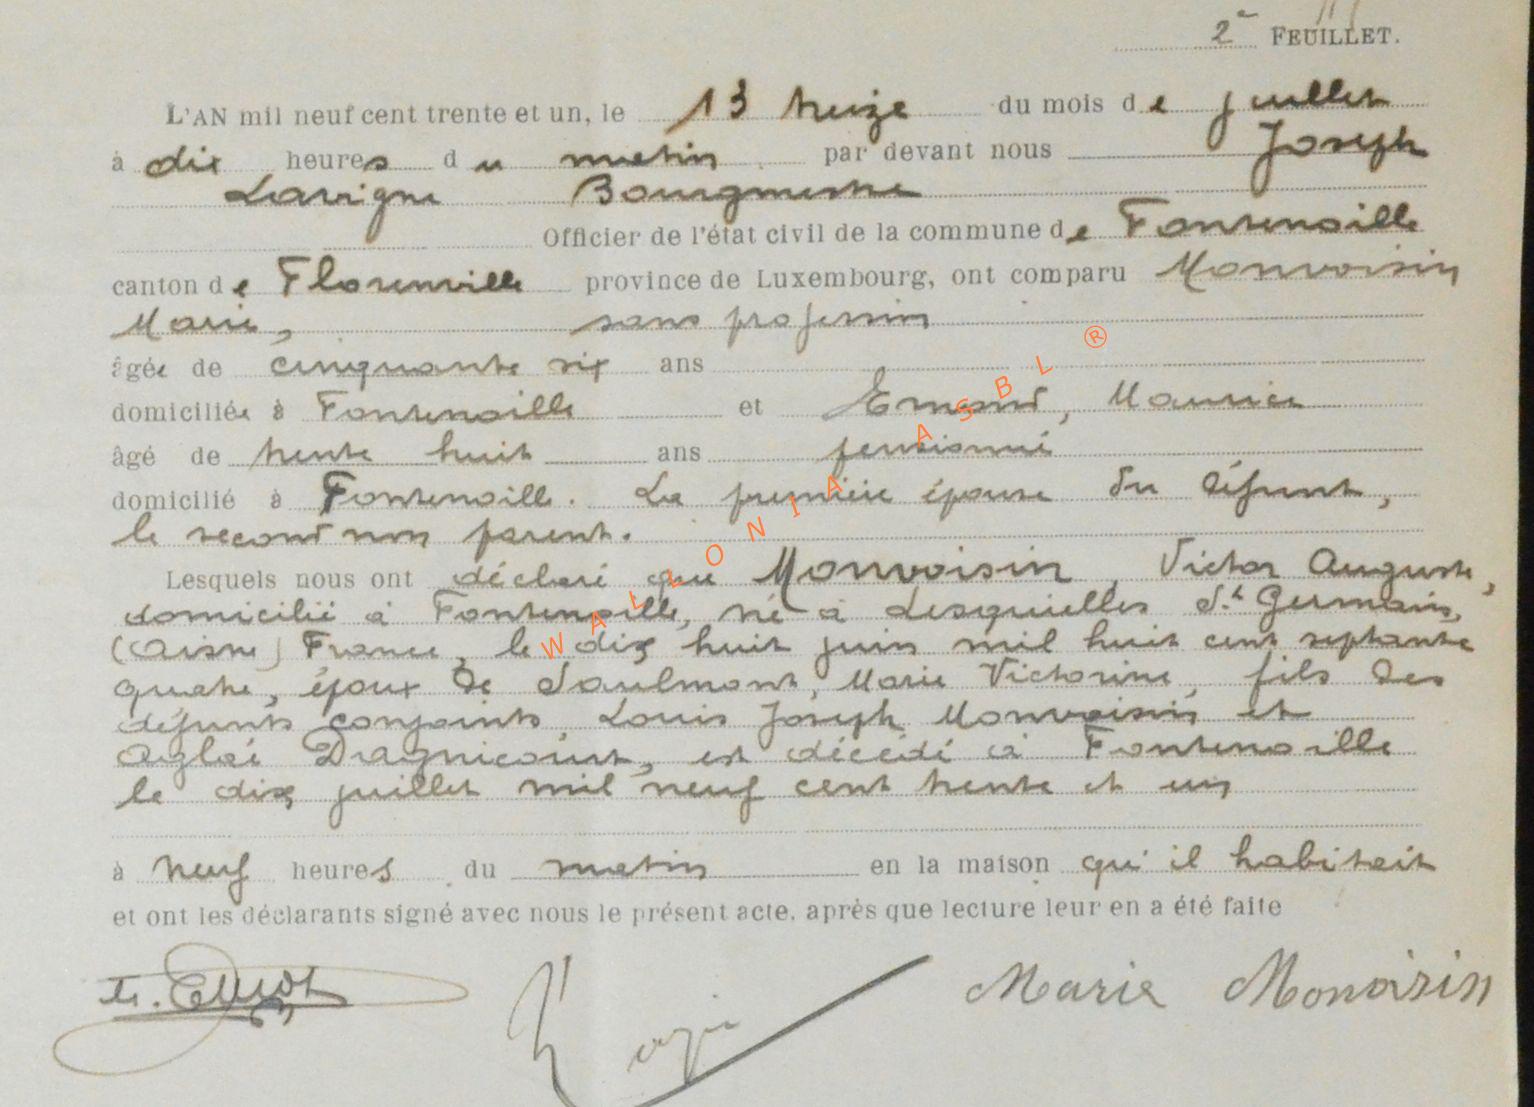 2e FEUILLET.
L'AN mil neuf cent trente et un, le 13 treize du mois de juillet
à dix heures du matin par devant nous Joseph
Lavigne Bourgmestre
Officier de l'état civil de la commune de Fontenoille
canton de Florenville province de Luxembourg, ont comparu Monvoisin
Marie, sans profession
âgée de cinquante six ans
domiciliée à Fontenoille et Emond, Maurice
âgé de trente huit ans pensionné
domicilié à Fontenoille. La première épouse du défunt,
le second non parent.
Lesquels nous ont déclaré que Monvoisin, Victor Auguste,
domicilié à Fontenoille, né à Lesquielles St Germain,
(Aisne) France, le dix huit juin mil huit cent septante
quatre, époux de Saulmont, Marie Victorine, fils des
défunts conjoints Louis Joseph Monvoisin et
Aglaé Dragnicourt, est décédé à Fontenoille
le dix juillet mil neuf cent trente et un
à neuf heures du matin en la maison qu'il habitait
et ont les déclarants signé avec nous le présent acte, après que lecture leur en a été faite
Marie Monvoisin
WALLONIA ASBL ®